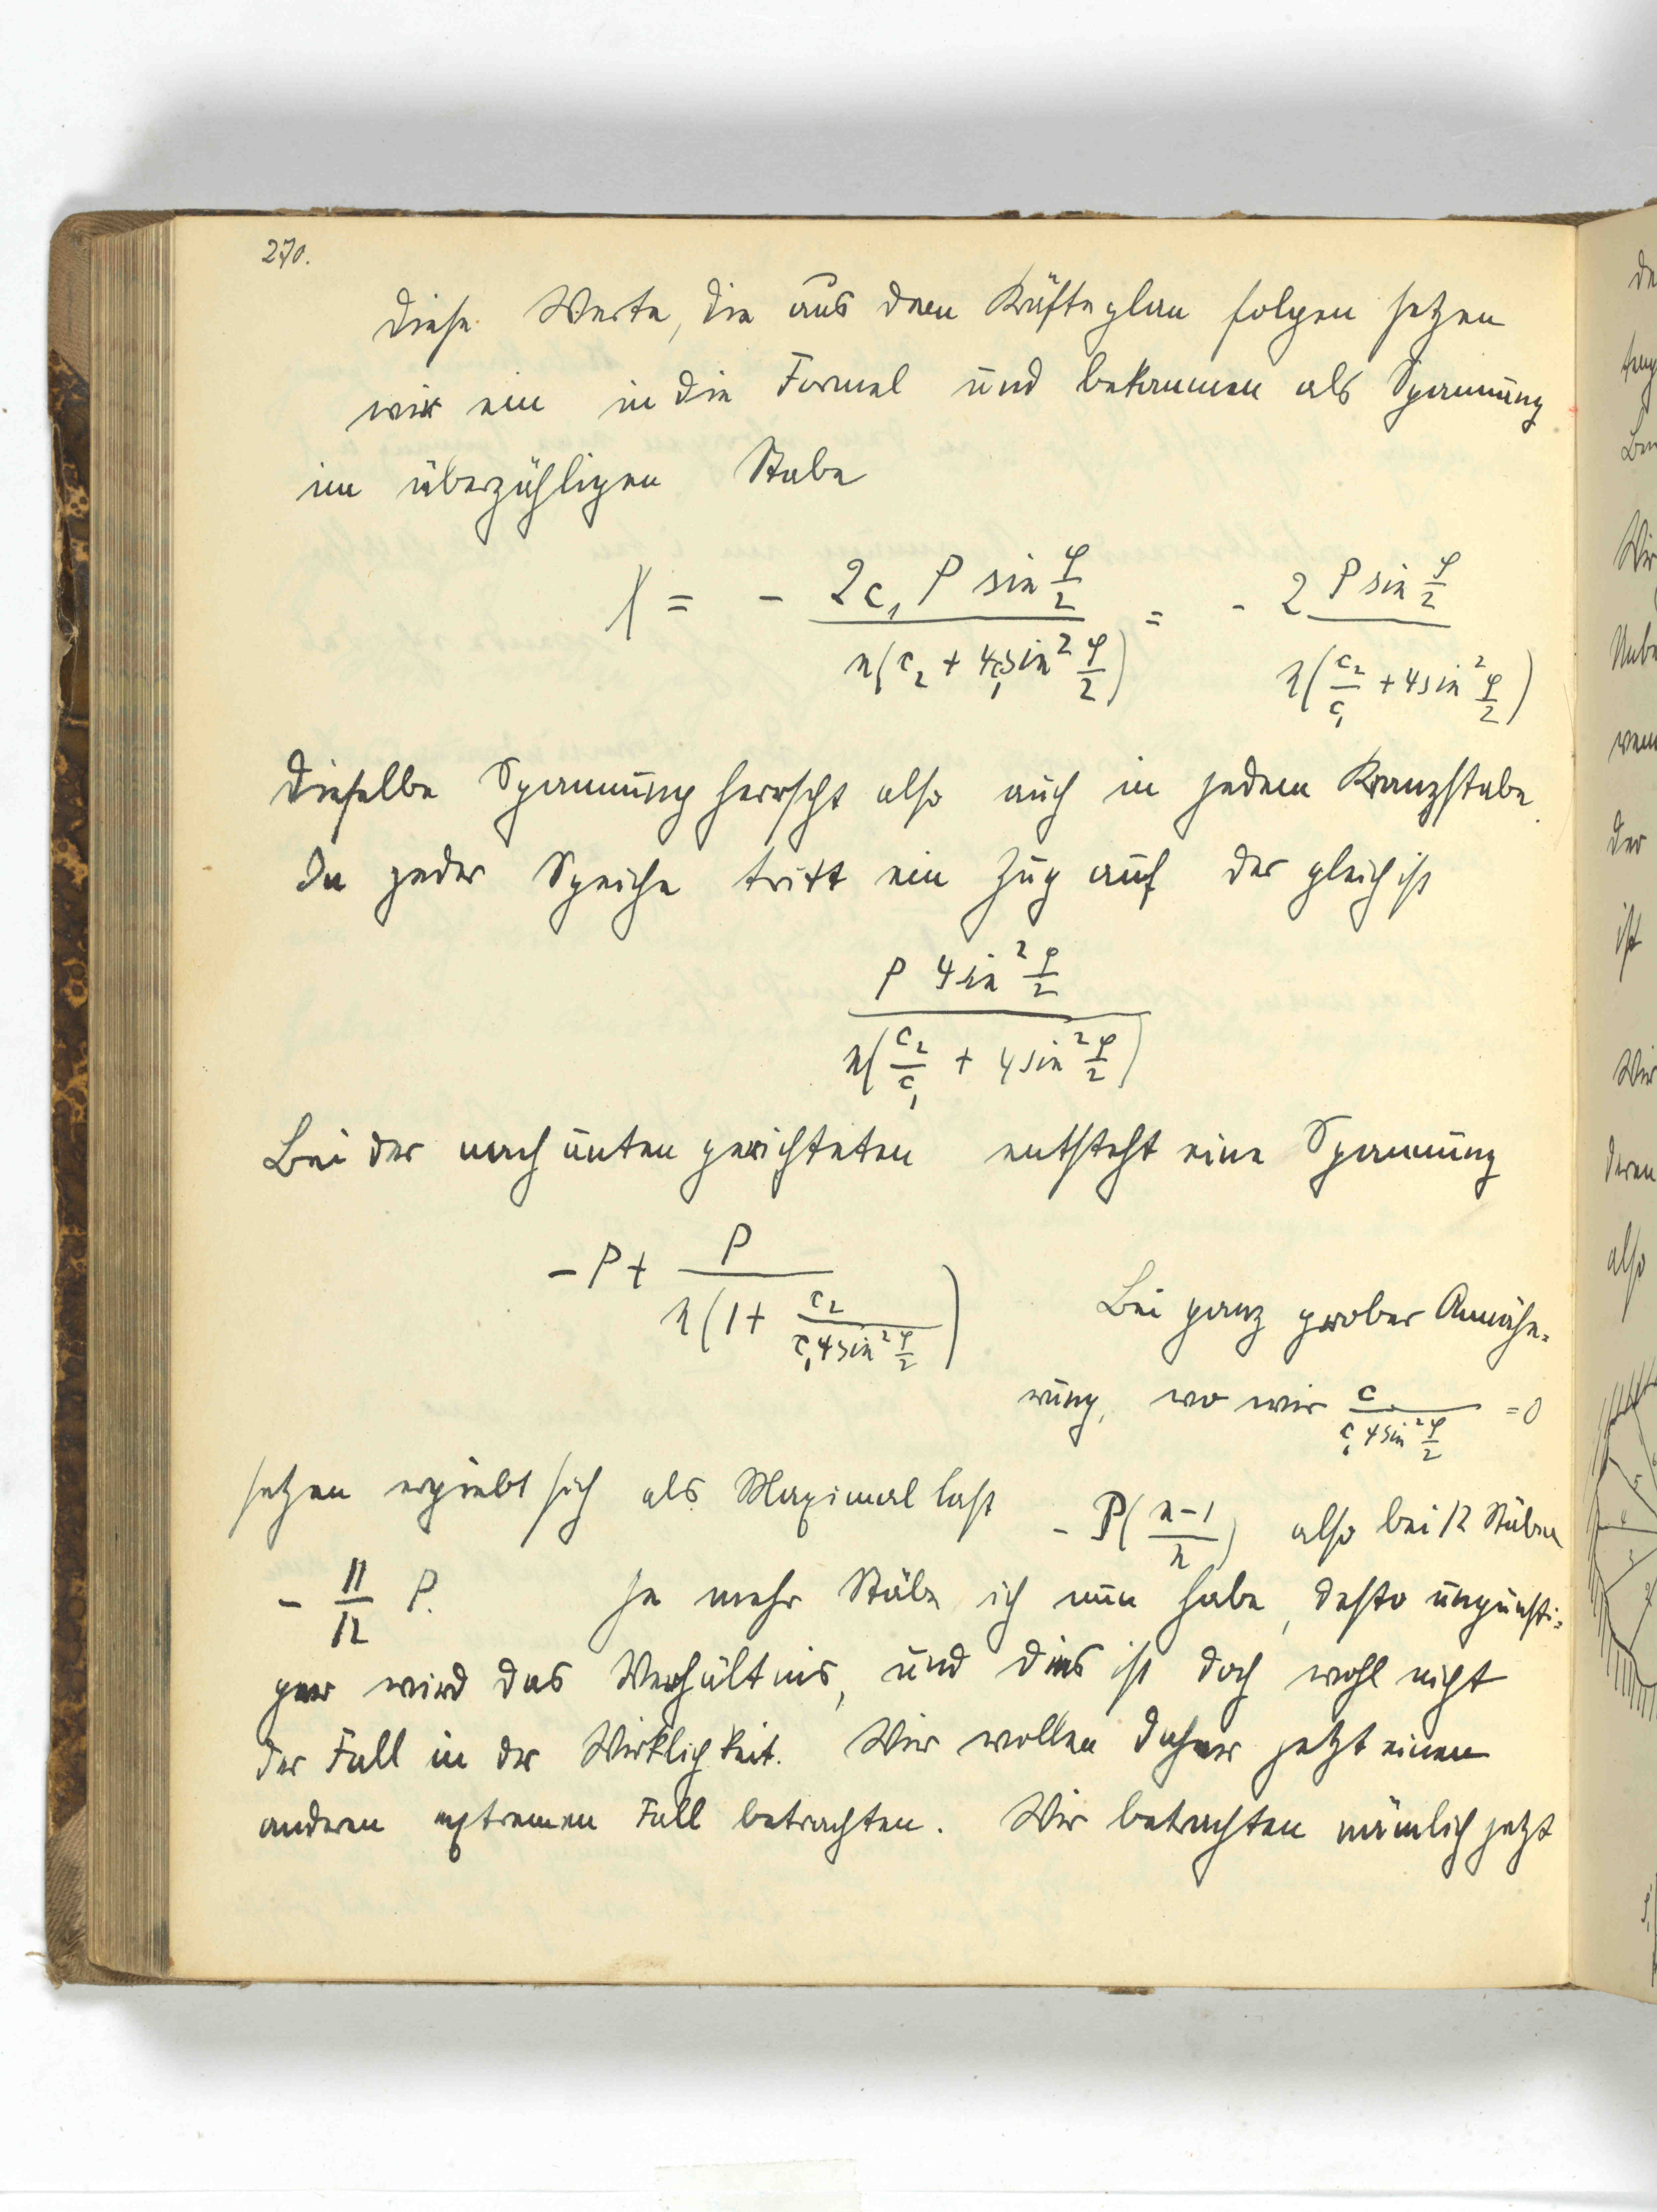 270.
Diese Werte, die aus dem Kräfteplan folgen setzen
wir ein in die Formel und bekommen als Spannung
im überzähligen Stabe
X = - \frac{2c_1 P sin \frac{φ}{2}}{n(c_2 + 4c_1 sin^2 \frac{φ}{2})} = - \frac{2 P sin \frac{φ}{2}}{n(\frac{c_2}{c_1} + 4 sin^2 \frac{φ}{2})}
Dieselbe Spannung herrscht also auch in jedem Kranzstabe.
In jeder Speiche tritt ein Zug auf der gleich ist
\frac{P 4 sin^2 \frac{φ}{2}}{n(\frac{c_2}{c_1} + 4 sin^2 \frac{φ}{2})}
Bei der nach unten gerichteten entsteht eine Spannung
- P + \frac{P}{n(1 + \frac{c_2}{c_1 4 sin^2 \frac{φ}{2}})} Bei ganz grober Annähe-
rung, wo wir \frac{c}{c_1 4 sin^2 \frac{φ}{2}} = 0
setzen ergiebt sich als Maximallast - P(\frac{n-1}{n}) also bei 12 Stäben
- \frac{11}{12} P. Je mehr Stäbe ich nun habe, desto ungünsti-
ger wird das Verhältnis, und dies ist doch wohl nicht
der Fall in der Wirklichkeit. Wir wollen daher jetzt einen
anderen extremen Fall betrachten. Wir betrachten nämlich jetzt
Wir
der
ist
Wir
deren
also